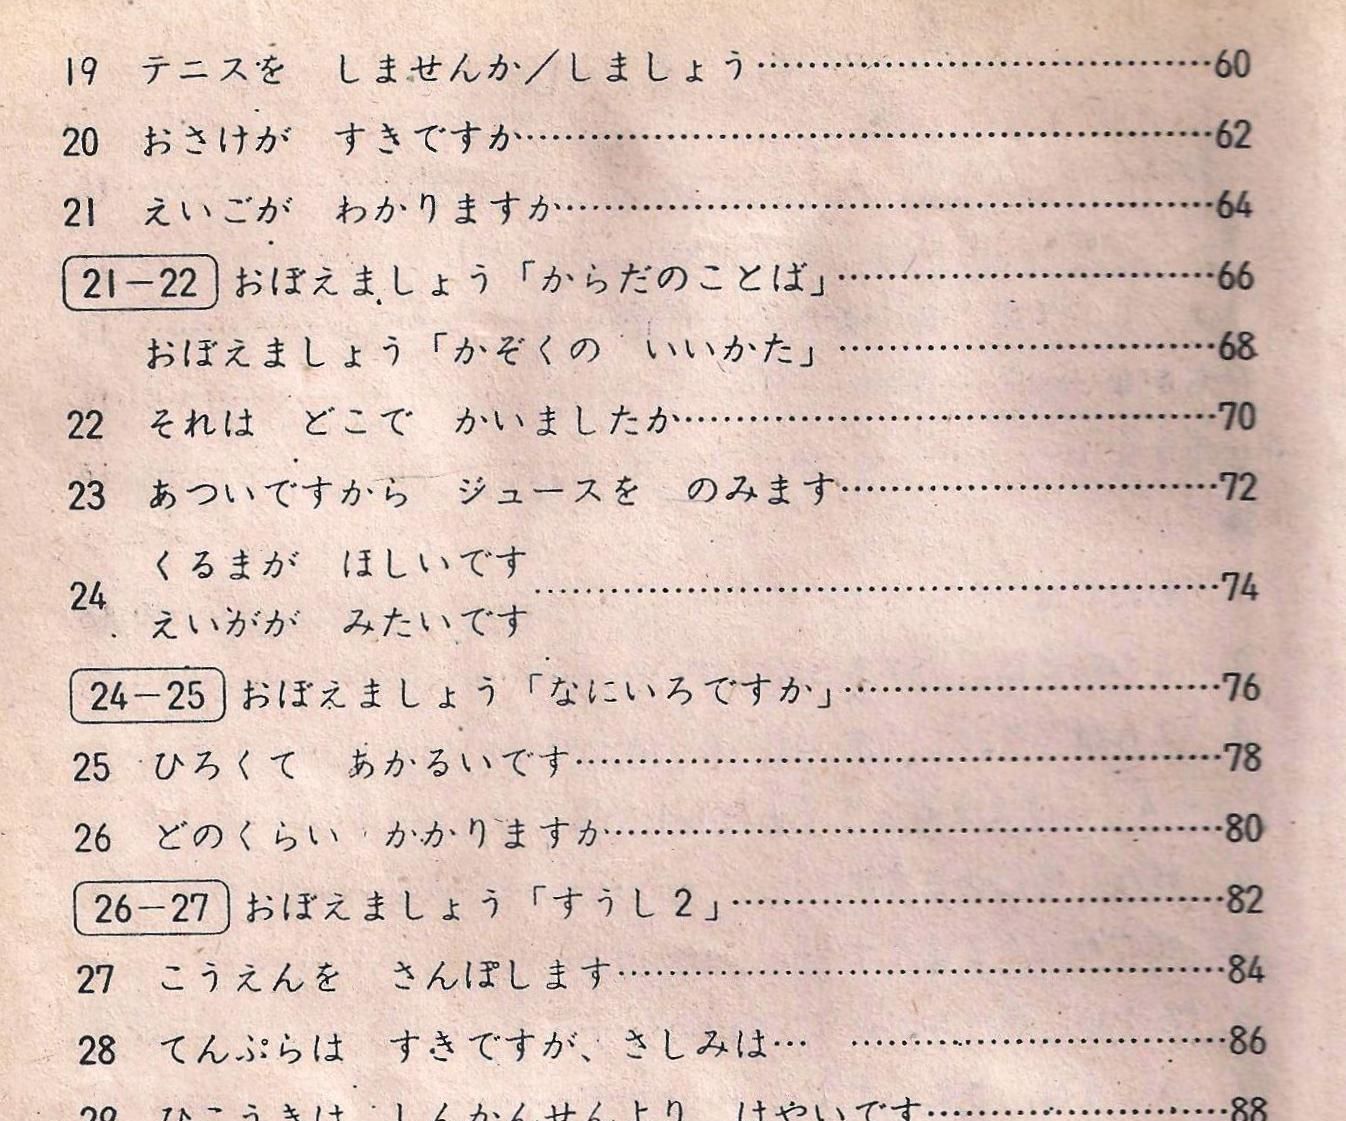 19 テニスを しませんか/しましょう……………60
20 おさけが すきですか……………62
21 えいごが わかりますか……………64
21-22 おぼえましょう「からだのことば」……………66
おぼえましょう「かぞくの いいかた」……………68
22 それは どこで かいましたか……………70
23 あついですから ジュースを のみます……………72
くるまが ほしいです
24 ……………74
えいがが みたいです
24-25 おぼえましょう「なにいろですか」……………76
25 ひろくて あかるいです……………78
26 どのくらい かかりますか……………80
26-27 おぼえましょう「すうし2」……………82
27 こうえんを さんぽします……………84
28 てんぷらは すきですが、さしみは… ……………86
29 ひこうきは しんかんせんより はやいです……………88